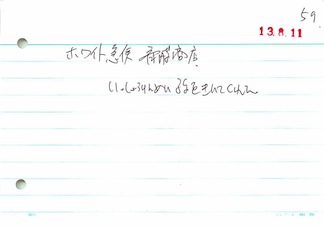 59
13.8.11
ホワイト急便 斎藤商店
いっしょうけんめい 話をきいてくれた